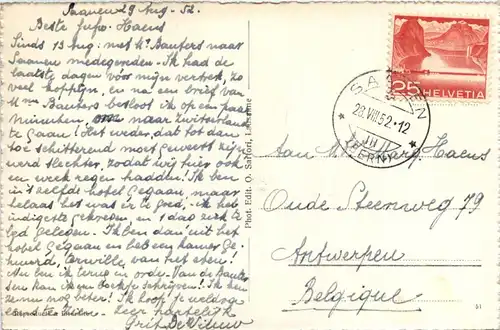 Saanen 29 Aug - 52.
Beste Jufr. Haens
Sinds 13 Aug. met h. Baufers naar
Saanen medegereden - Ik had de
laatste dagen voor mijn vertrek, zo
veel hoofdpyn, en na een brief van
Mme Baufers besloot ik op een paar
minuten, om naar Zwitserland
te gaan! Het weder, dat tot dan
toe schitterend moet geweest zijn
werd slechter, zodat wij hier ook
en week regen hadden! Ik ben
in 't zelfde hotel gegaan, maar
helaas het was er te goed, - ik heb
indigestie gekregen, en 1 dag ziek te
bed gelegen. Ik ben dan uit het
hotel gegaan en heb een kamer ge-
huurd, terwille van het eten!
Nu ben ik terug in orde. Van de
kan ik geen schrijven! Ik ben
ze nu nog beter! Ik hoop je weldra
Zeer hartelijk
Phot. Edit. O. Sartori, Lausanne
25
HELVETIA
SAANEN
28.VIII.52.-12
(BERN)
Aan M. Marg. Haens
Oude Steenweg 79
Antwerpen
Belgique
51